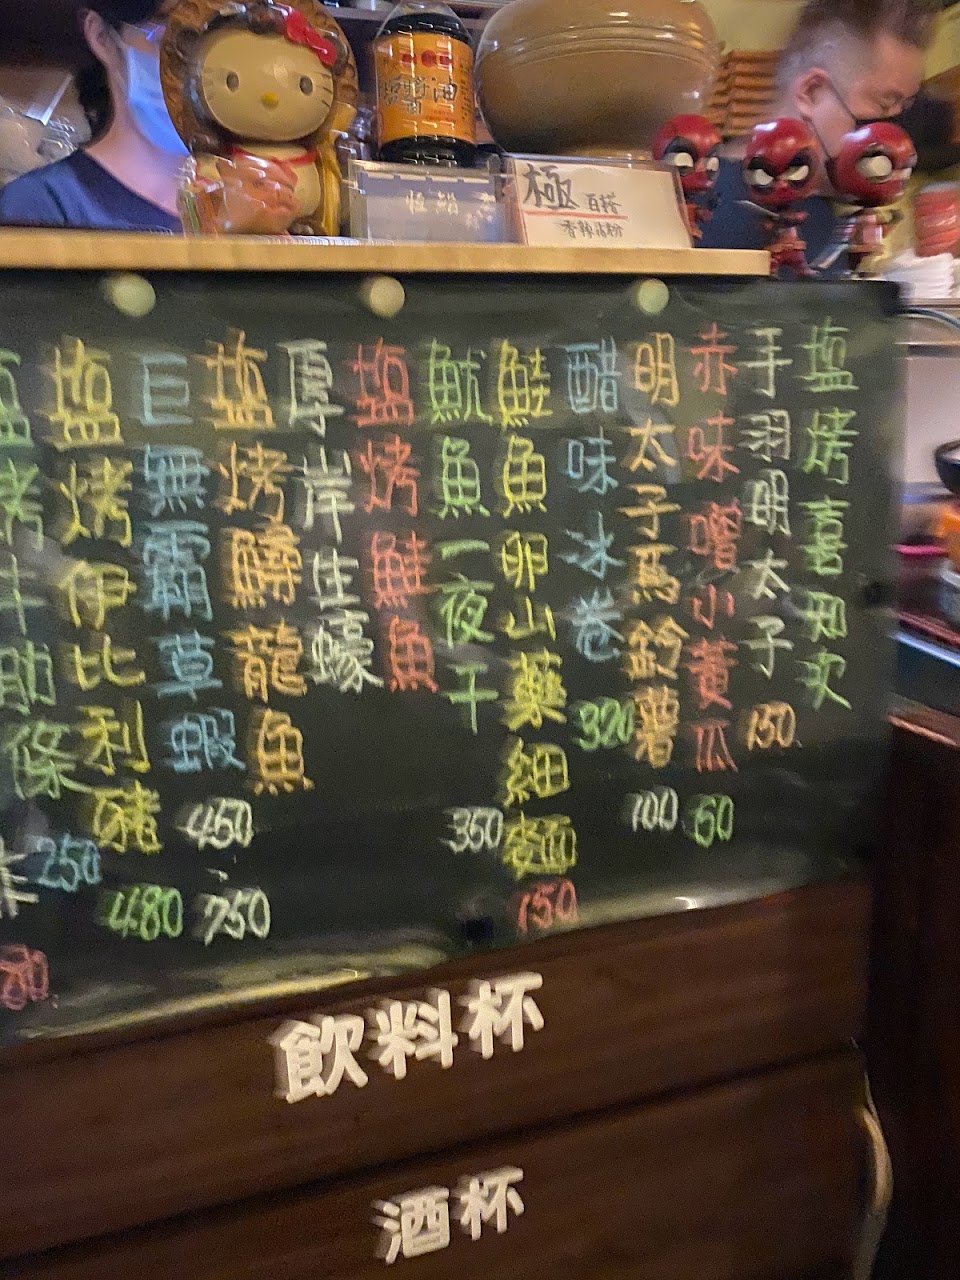 醬油
極 百搭
香辣醬粉
塩烤喜知次
手羽明太子 150
赤味噌小黃瓜 60
明太子馬鈴薯 100
醋味冰卷 320
鮭魚卵山藥細麵 150
魷魚一夜干 350
塩烤鮭魚
厚岸生蠔
塩烤鱘龍魚
巨無霸草蝦 450
750
塩烤伊比利豬 480
烤牛助條 250
飲料杯
酒杯